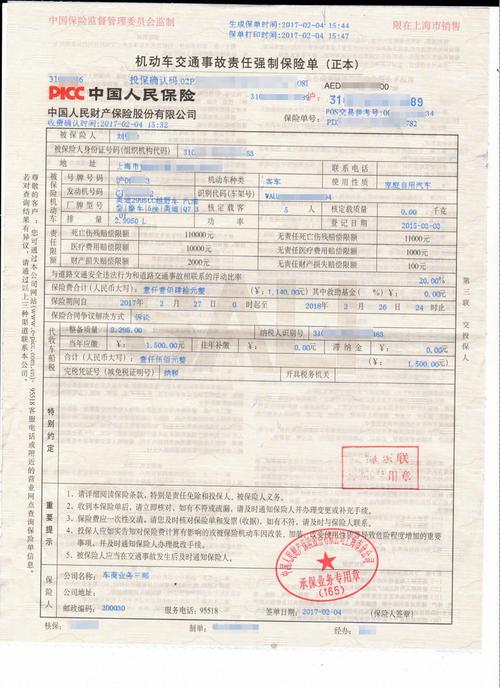 中国保险监督管理委员会监制
生成保单时间:2017-02-04 15:44
保单打印时间:2017-02-04 15:47
限在上海市销售
机动车交通事故责任强制保险单（正本）
投保确认码:02P
PICC 中国人民保险
中国人民财产保险股份有限公司
收费确认时间:2017-02-04 15:32
AED 00
沪: 31 89
保险单号:
POS交易参考号:
782
被保险人 刘
被保险人身份证号码(组织机构代码) 310 53
地址 上海市 联系电话
被保险机动车
号牌号码 沪D 3 机动车种类 客车 使用性质 家庭自用汽车
发动机号 CJ 2 识别代码(车架号) WAU
厂牌型号 奥迪2995CC越野车 汽油型|整车|5座|奥迪|Q7 3 核定载客 5 人 核定载质量 0.00 千克
排量 2.9950 L 功率 登记日期 2015-03-03
责任限额
死亡伤残赔偿限额 110000元 无责任死亡伤残赔偿限额 11000元
医疗费用赔偿限额 10000元 无责任医疗费用赔偿限额 1000元
财产损失赔偿限额 2000元 无责任财产损失赔偿限额 100元
与道路交通安全违法行为和道路交通事故相联系的浮动比率 20.00%
保险费合计(人民币大写): 壹仟壹佰肆拾元整 (￥: 1,140.00元) 其中救助基金( %) ￥: 0.00元
保险期间自 2017年 2月 27日 0时起至 2018年 2月 26日 24时止
保险合同争议解决方式 诉讼
代收车船税
整备质量 2,295.00 纳税人识别号 310 463
当年应缴 ￥: 1,500.00元 往年补缴 ￥: 0.00元 滞纳金 ￥: 0.00元
合计(人民币大写): 壹仟伍佰元整 (￥: 1,500.00元)
完税凭证号(减免税证明号) 纳税 开具税务机关
特别约定
重要提示
1. 请详细阅读保险条款，特别是责任免除和投保人、被保险人义务。
2. 收到本保险单后，请立即核对，如有不符或疏漏，请及时通知保险人并办理变更或补充手续。
3. 保险费应一次性交清，请您及时核对保险单和发票(收据)，如有不符，请及时与保险人联系。
4. 投保人应如实告知对保险费计算有影响的或被保险机动车因改装、加装、改变使用性质等导致危险程度增加的重要事项，并及时通知保险人办理批改手续。
5. 被保险人应当在交通事故发生后及时通知保险人。
保险人
公司名称: 车商业务三部
公司地址:
邮政编码: 200030 服务电话: 95518 签单日期: 2017-02-04 (保险人签章)
核保: 制单: 经办:
承保业务专用章
(165)
用章
第三联 交投保人
尊敬的客户:您可通过本公司网站(www.e-picc.com.cn)、95518客服电话或附近的营业网点查询保险单信息。若对查询结果有异议，请通过以上三种渠道联系本公司。